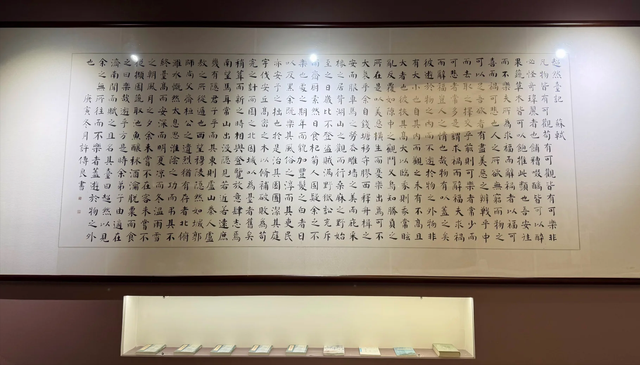 超然臺記 蘇軾
凡物皆有可觀苟有可觀皆有可樂非
必怪奇偉麗者也餔糟啜醨皆可以醉
果蔬草木皆可以飽推此類也吾安往
而不樂夫所為求福而辭禍者以福可
喜而禍可悲也人之所欲無窮而物之
可以足吾欲者有盡美惡之辨戰乎中
而去取之擇交乎前則可樂者常少而
可悲者常多是謂求禍而辭福夫求禍
而辭福豈人之情也哉物有以蓋之矣
彼遊於物之內而不遊於物之外物非
有大小也自其內而觀之未有不高且
大者也彼挾其高大以臨我則我常眩
亂反覆如隙中之觀鬬又焉知勝負之
所在是以美惡橫生而憂樂出焉可不
大哀乎余自錢塘移守膠西釋舟楫之
安而服車馬之勞去雕牆之美而庇采
椽之居背湖山之觀而行桑麻之野始
至之日歲比不登盜賊滿野獄訟充斥
而齋廚索然日食杞菊人固疑余之不
樂也處之期年而貌加豐髮之白者日
以反黑余既樂其風俗之淳而其吏民
亦安予之拙也於是治其園囿潔其庭
宇伐安丘高密之木以修補破敗為苟
完之計而園之北因城以為臺者舊矣
稍葺而新之時相與登覽放意肆志焉
南望馬耳常山出沒隱見若近若遠庶
幾有隱君子乎而其東則盧山秦人盧
敖之所從遁也西望穆陵隱然如城郭
師尚父齊桓公之遺烈猶有存者北俯
濰水慨然太息思淮陰之功而弔其不
終臺高而安深而明夏涼而冬溫雨雪
之朝風月之夕余未嘗不在客未嘗不
從擷園蔬取池魚釀秫酒瀹脫粟而食
之曰樂哉遊乎方是時余弟子由適在
濟南聞而賦之且名其臺曰超然以見
余之無所往而不樂者蓋遊於物之外
也 庚寅冬月許傳良書